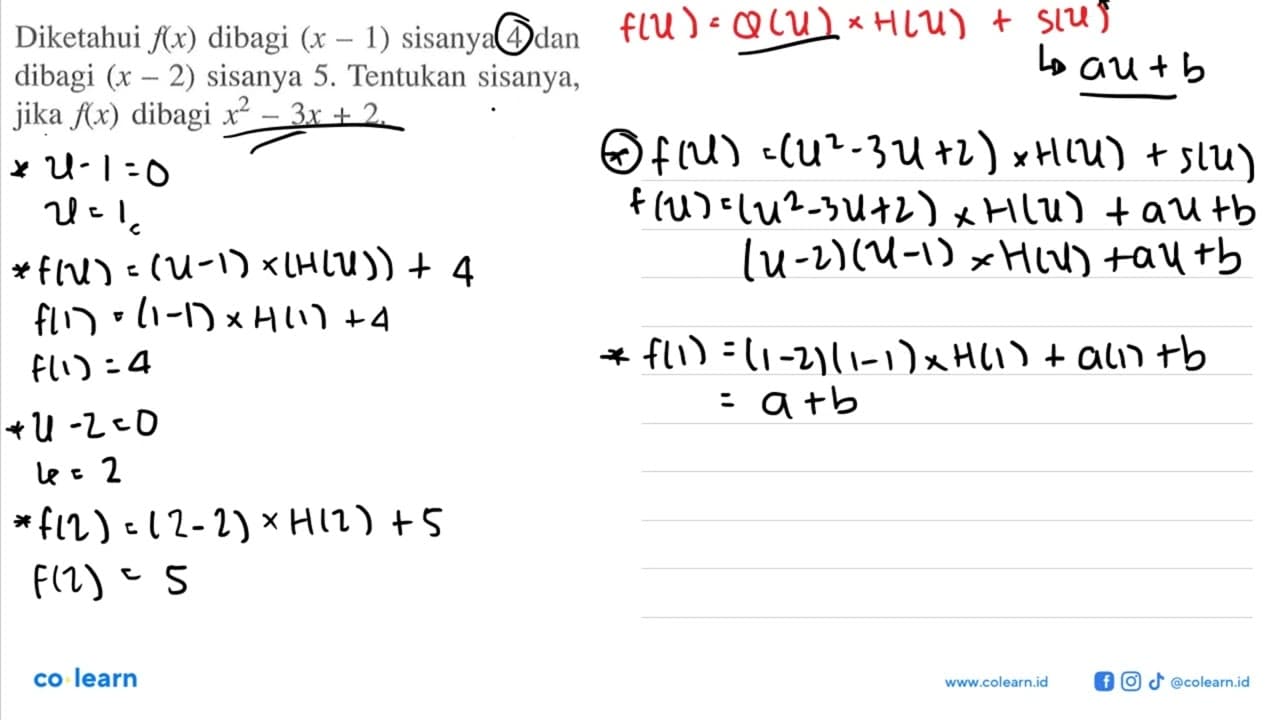 Diketahui f(x) dibagi (x – 1) sisanya 4 dan
dibagi (x – 2) sisanya 5. Tentukan sisanya,
jika f(x) dibagi x² – 3x + 2.
* x - 1 = 0
x = 1
* f(x) = (x-1) × (H(x)) + 4
f(1) = (1-1) × H(1) + 4
f(1) = 4
* x - 2 = 0
x = 2
* f(2) = (2-2) × H(2) + 5
f(2) = 5
f(x) = Q(x) × H(x) + s(x)
↳ ax + b
* f(x) = (x²-3x+2) × H(x) + s(x)
f(x) = (x²-3x+2) × H(x) + ax+b
(x-2)(x-1) × H(x) + ax+b
* f(1) = (1-2)(1-1) × H(1) + a(1) + b
= a+b
co learn
www.colearn.id
@colearn.id